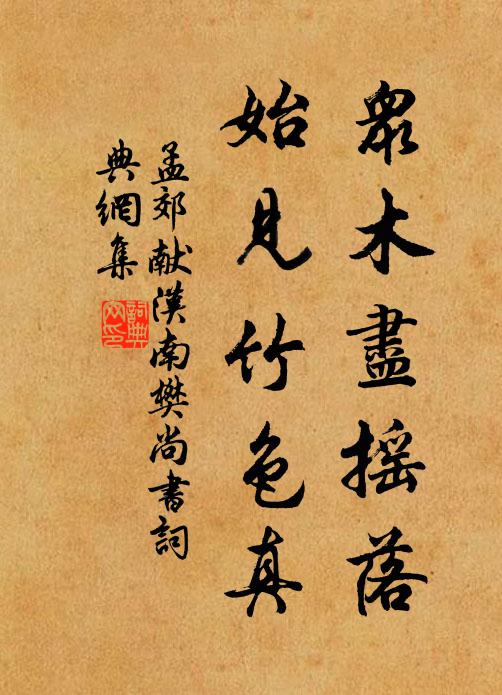 眾木盡摇落
始見竹色真
孟郊献漢南樊尚書詞
典網集
詞典
网印